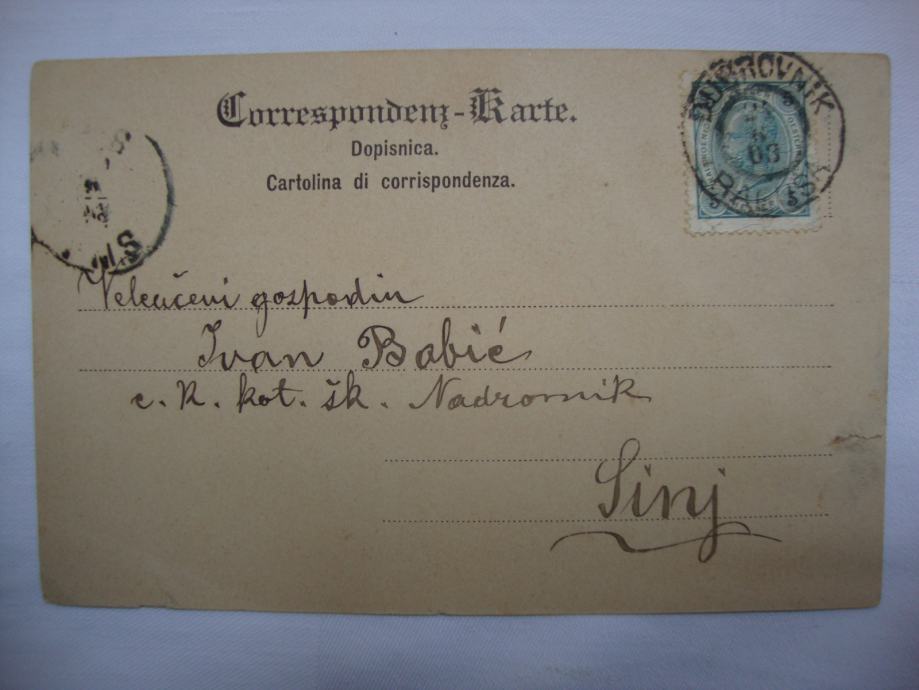 Correspondenz-Karte.
Dopisnica.
Cartolina di corrispondenza.
DUBROVNIK
03
5
5 5
Veleučeni gospodin
Ivan Babić
c. k. kot. šk. Nadzornik
Sinj